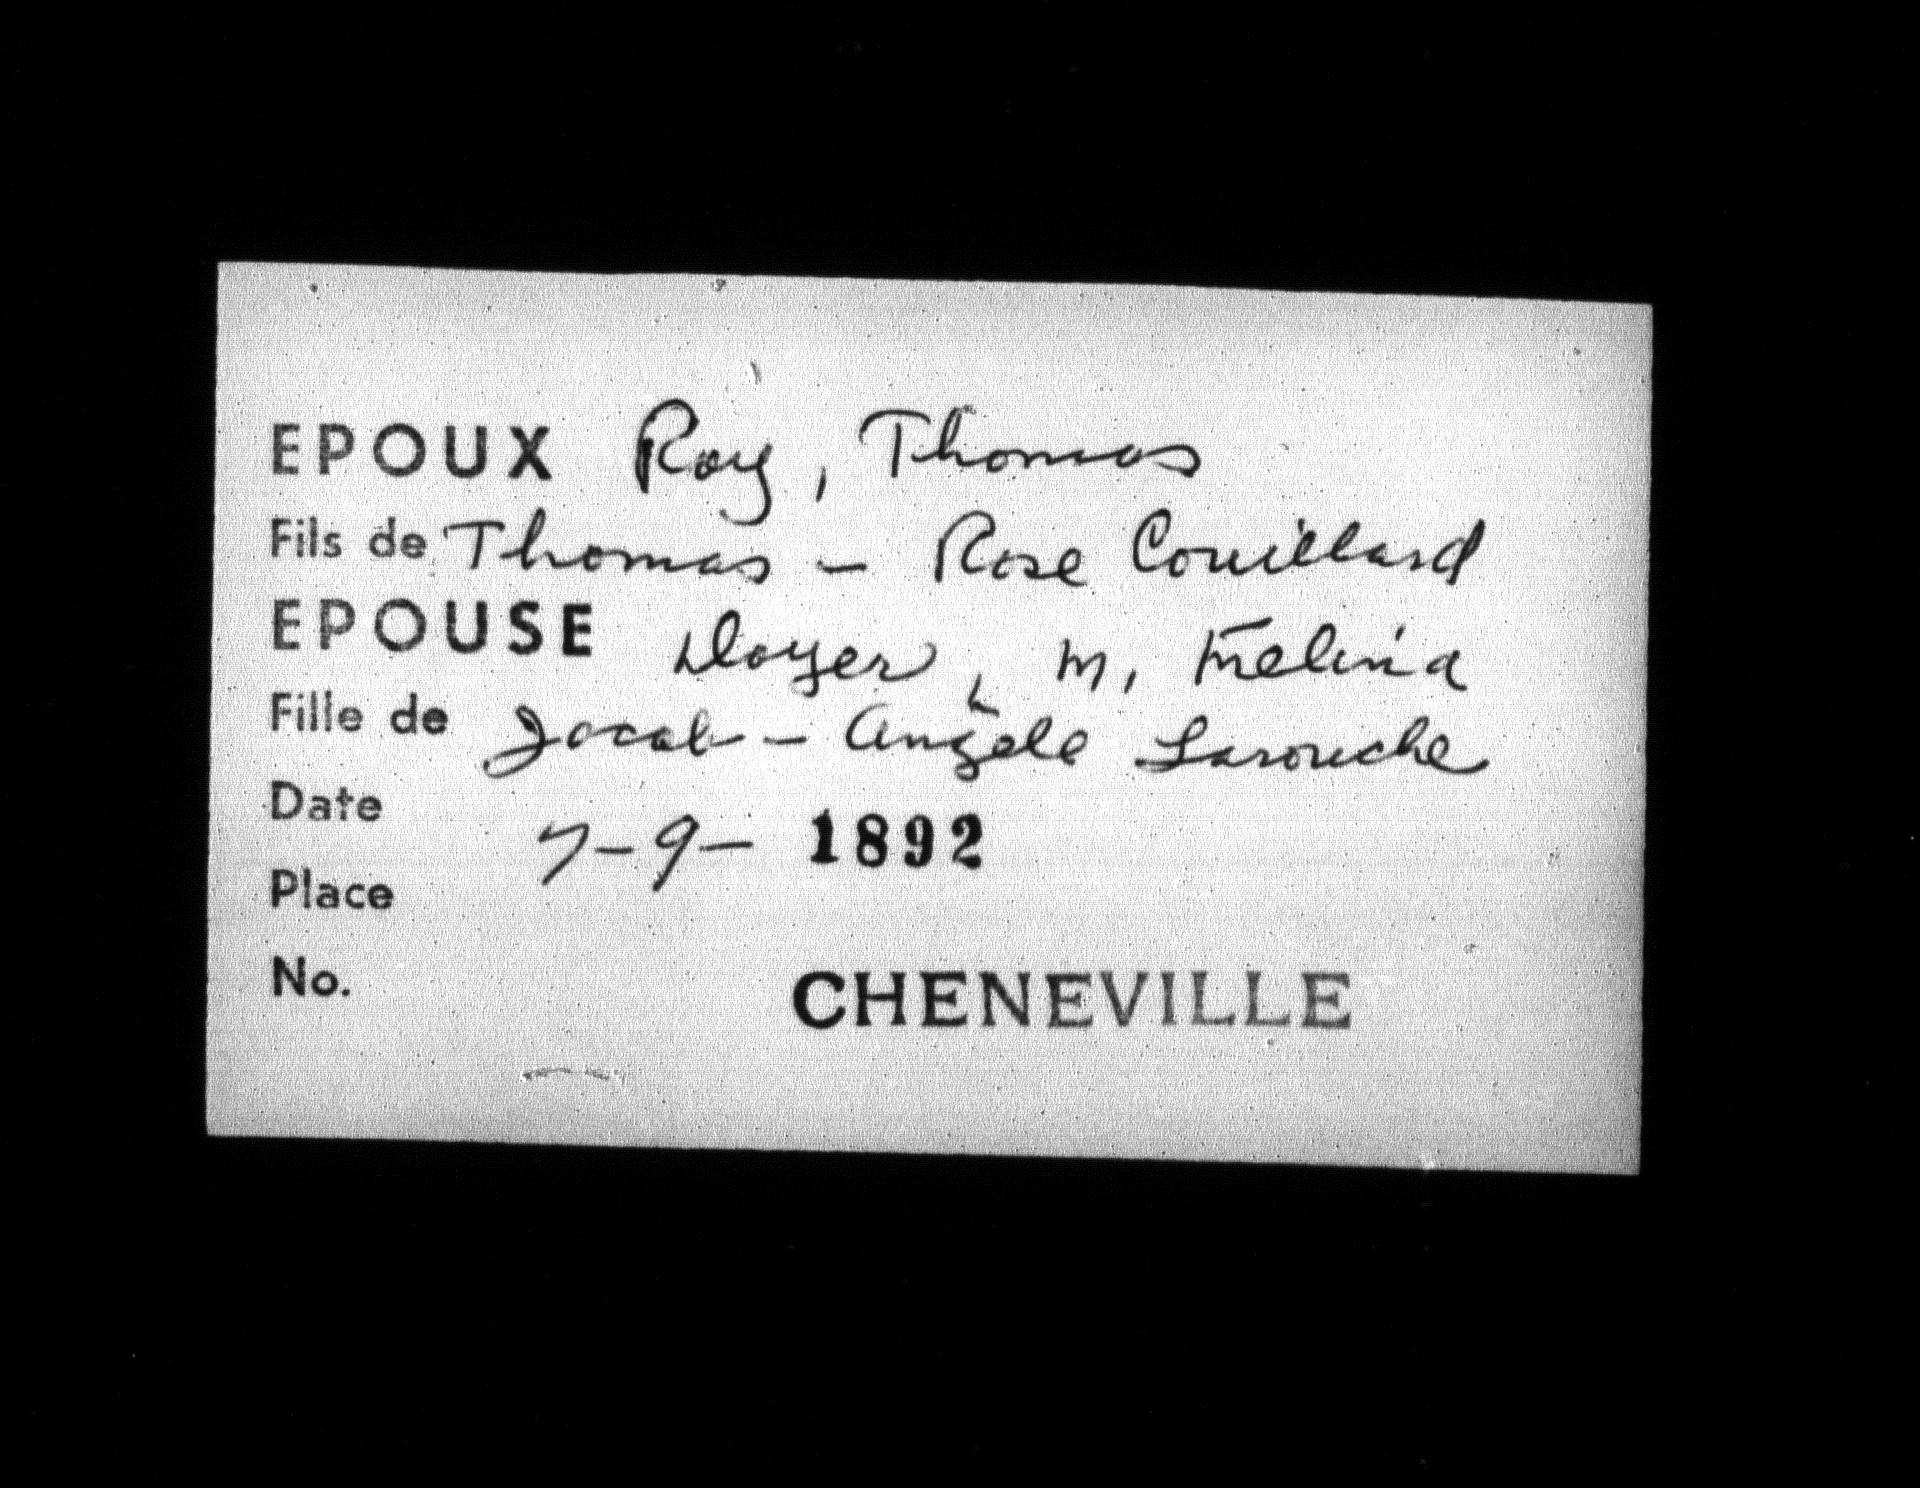 EPOUX Roy, Thomas
Fils de Thomas - Rose Couillard
EPOUSE Doyer, M.
Fille de Jacob - Angèle Larouche
Date 7-9- 1892
Place
No.
CHENEVILLE